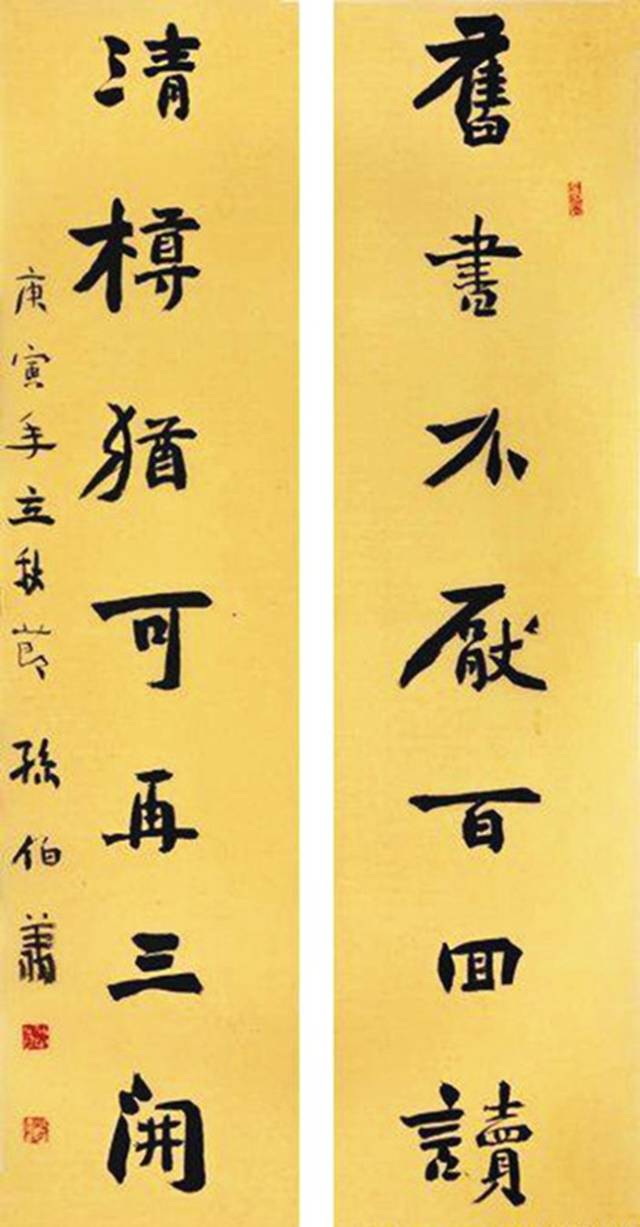 舊書不厭百回讀
清樽猶可再三開
庚寅年立秋節孫伯翔